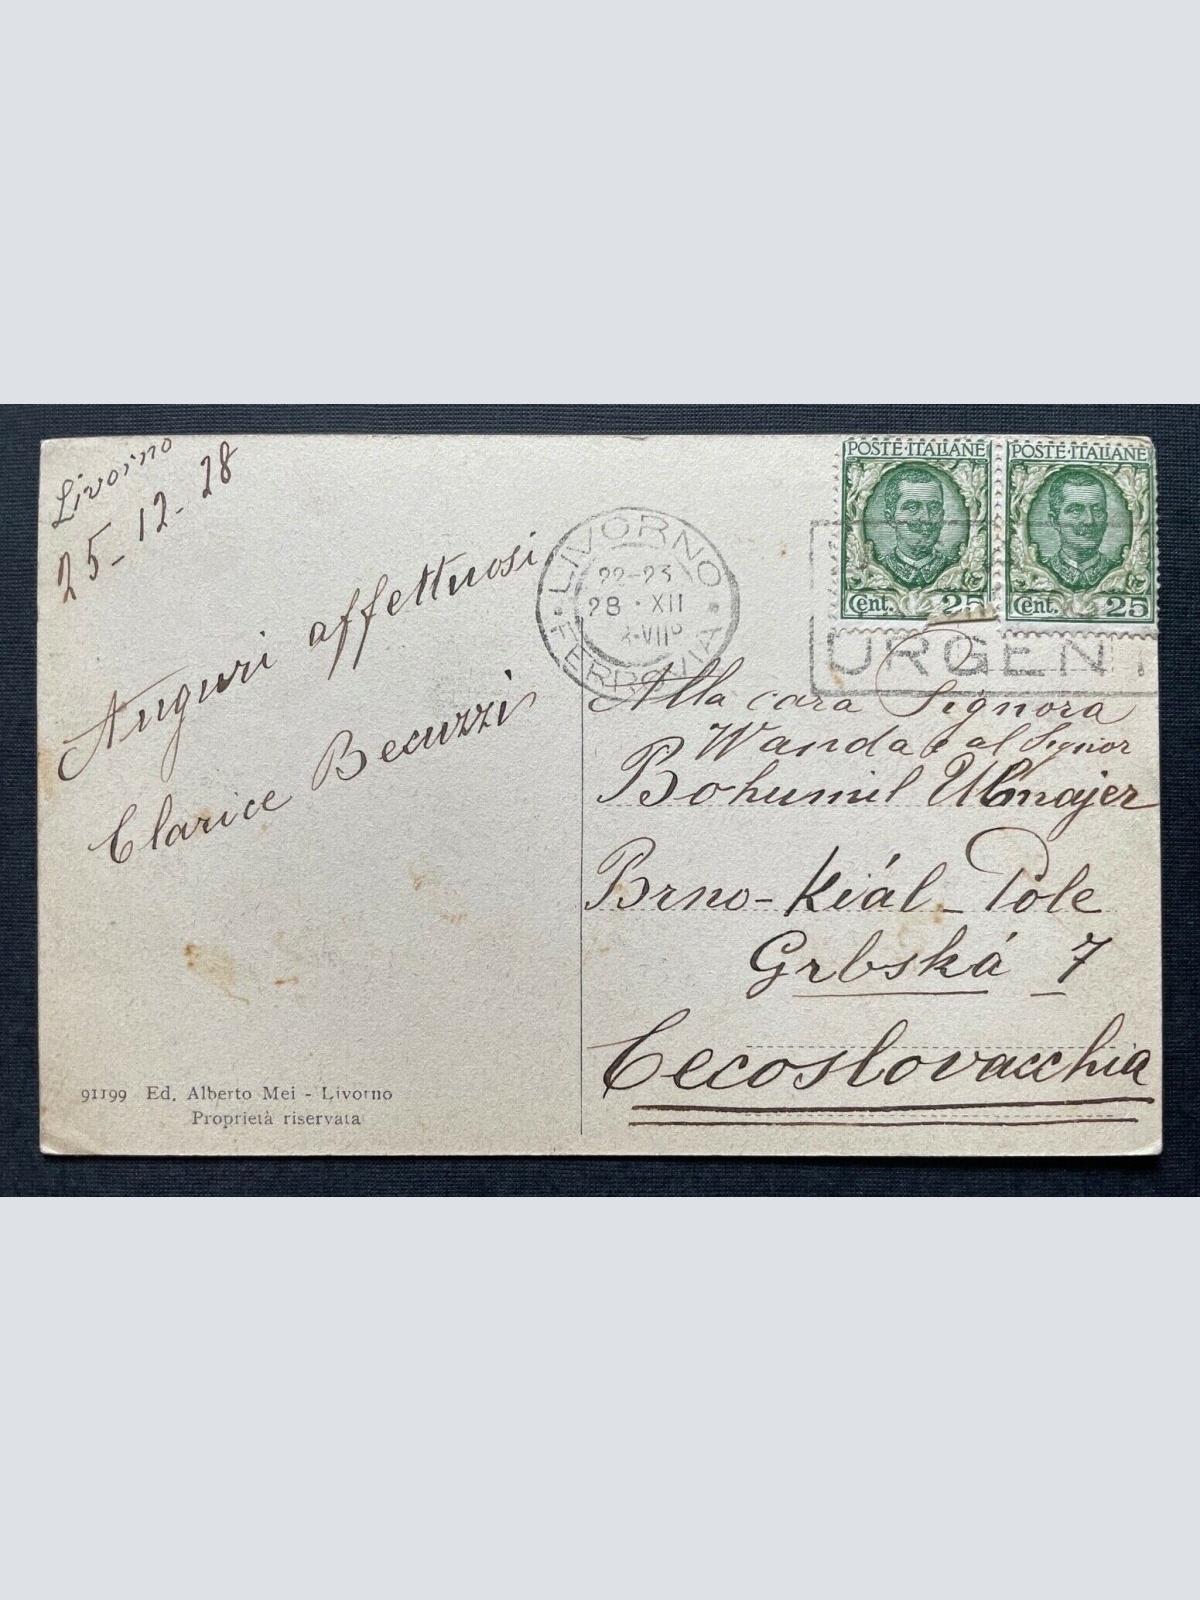 Livorno
25-12-28
Auguri affettuosi
Clarice Becuzzi
91199 Ed. Alberto Mei - Livorno
Proprietà riservata
LIVORNO
22-23
28 · XII
FERROVIA
POSTE·ITALIANE
Cent. 25
POSTE·ITALIANE
Cent. 25
URGENT
Alla cara Signora
Wanda e al Signor
Bohumil
Brno - Kiál - Pole
Grbská 7
Cecoslovacchia